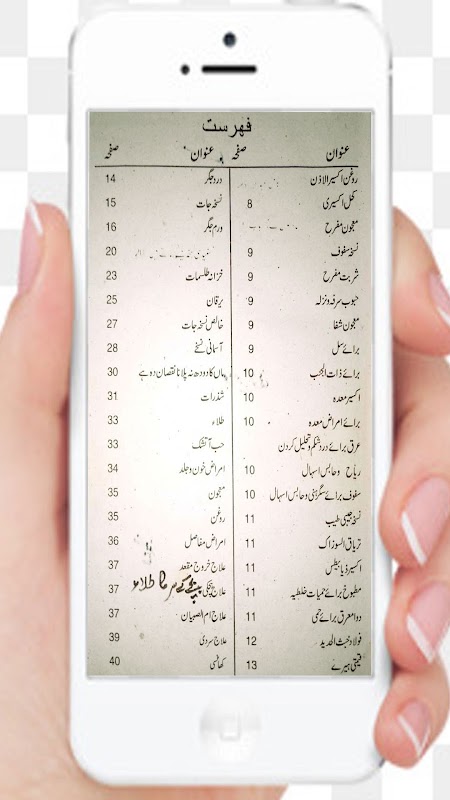 فہرست
عنوان صفحہ
روغن اکسیر الاذن
کحل اکسیری 8
معجون مفرح
نسخہ سفوف 9
شربت مفرح 9
حبوب سرفہ و نزلہ 9
معجون شفا 9
برائے سل 9
برائے ذات الجنب 10
اکسیر معدہ 10
برائے امراض معدہ 10
عرق برائے درد شکم و تحلیل کردن
ریاح و حابس اسہال 10
سفوف برائے سنگرہنی و حابس اسہال 10
نسخہ جیبی طبیب 11
تریاق السوزاک 11
اکسیر ذیابیطس 11
مطبوخ برائے حمیات خلطیہ 11
دوا معرق برائے حمی 11
فولاد خبث الحدید 12
قیمتی ہیرے 13
عنوان صفحہ
درد جگر 14
نسخہ جات 15
ورم جگر 16
20
خزانہ طلسمات 23
یرقان 25
خالص نسخہ جات 27
آسمانی نسخے 28
ماں کا دودھ نہ پلانا نقصان دہ ہے 30
شذرات 31
طلاء 33
حب آتشک 33
امراض خون و جلد 34
معجون 35
روغن 35
امراض مفاصل 36
علاج خروج مقعد 37
علاج پیچکی 37
علاج ام الصبیان 37
علاج سردی 39
کھانسی 40